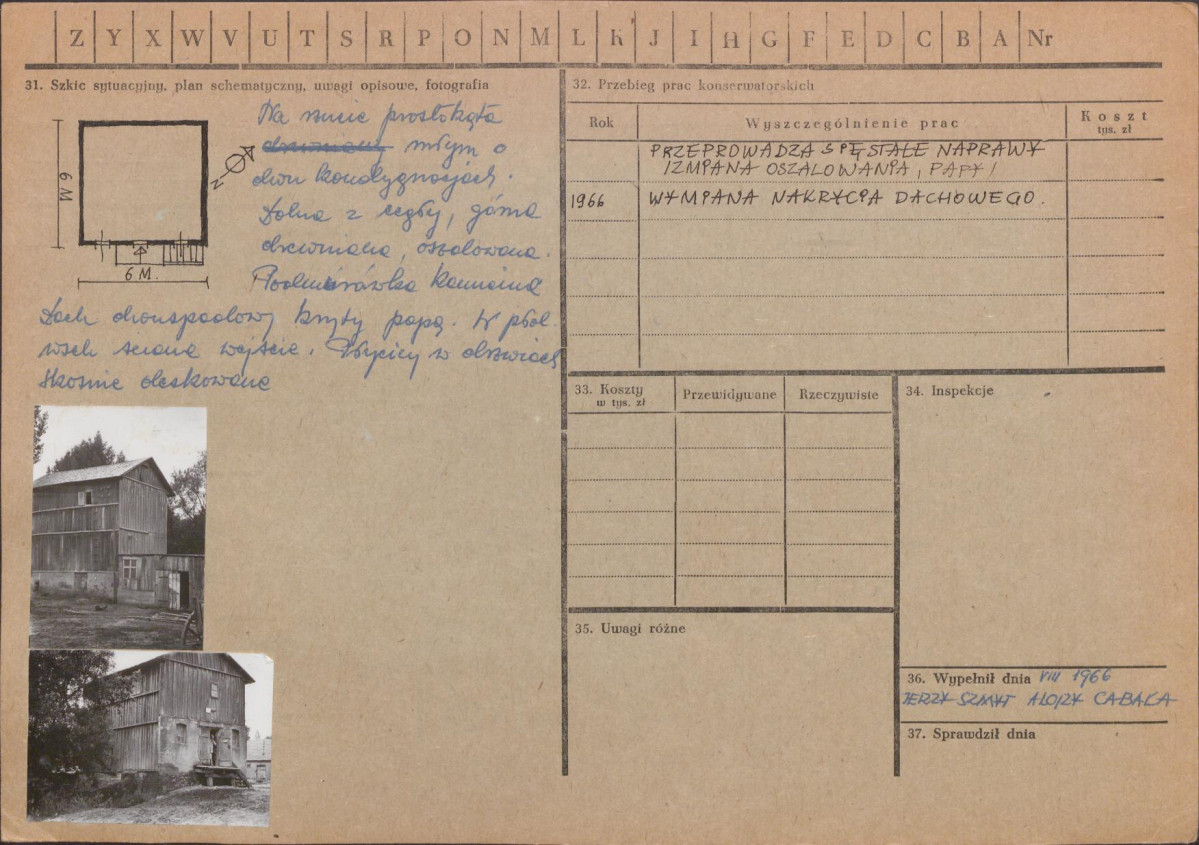 Z Y X W V U T S R P O N M L K J I H G F E D C B A Nr
31. Szkic sytuacyjny, plan schematyczny, uwagi opisowe, fotografia
6 M
N
6 M.
Na rzucie prostokąta
drewniany młyn o
dwu kondygnacjach.
Dolna z cegły, górna
drewniana, oszalowana.
Podmurówka kamienna
Dach dwuspadowy kryty papą. W płd.
wsch ściana wejście. Płyciny w drzwiach
skośnie deskowane
32. Przebieg prac konserwatorskich
Rok
Wyszczególnienie prac
Koszt
tys. zł
PRZEPROWADZA SIĘ STAŁE NAPRAWY
/ZMIANA OSZALOWANIA, PAPY/
1966 WYMIANA NAKRYCIA DACHOWEGO.
33. Koszty
w tys. zł
Przewidywane
Rzeczywiste
34. Inspekcje
35. Uwagi różne
36. Wypełnił dnia VIII 1966
JERZY SZMYT CABAŁA
37. Sprawdził dnia